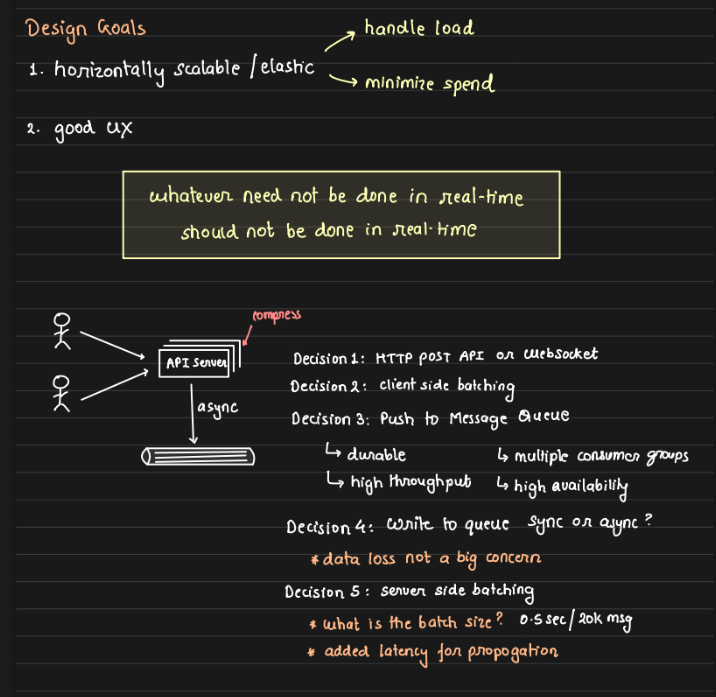 Design Goals
handle load
1. horizontally scalable / elastic
minimize spend
2. good ux
whatever need not be done in real-time
should not be done in real-time
compress
API Server
async
Decision 1: HTTP post API or websocket
Decision 2: client side batching
Decision 3: Push to Message Queue
↳ durable ↳ multiple consumer groups
↳ high throughput ↳ high availability
Decision 4: Write to queue sync or async?
* data loss not a big concern
Decision 5: server side batching
* what is the batch size? 0.5 sec / 20k msg
* added latency for propogation